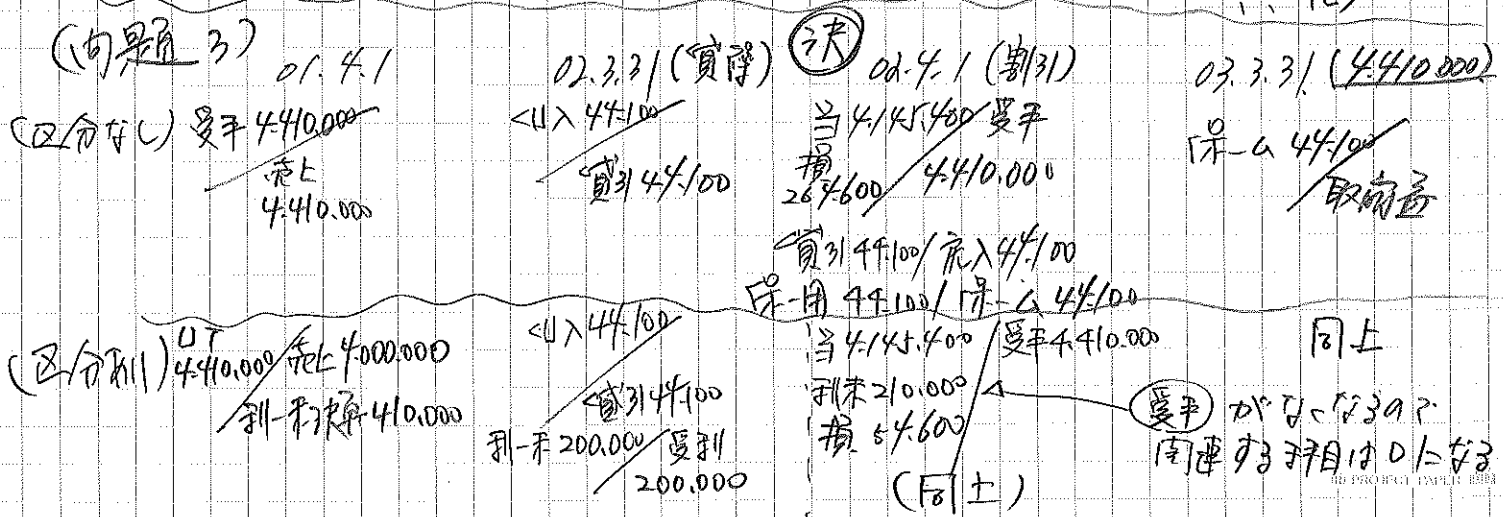 (問題 3)
01.4.1
02.3.31 (貸倒)
決
02.4.1 (割引)
03.3.31 (4.410.000)
(区分なし) 受手 4.410.000
売上
4.410.000
<川入 44.100
貸引 44.100
当 4.145.400 / 受手
損
264.600 / 4.410.000
貸引 44.100 / 戻入 44.100
保-用 44.100 / 保-ム 44.100
保-ム 44.100
取崩益
(区分処理)
UT
4.410.000 / 売上 4.000.000
利-未決算 410.000
<川入 44.100
貸引 44.100
利-未 200.000 / 受利
200.000
当 4.145.400 / 受手 4.410.000
利未 210.000
損 54.600
(同上)
同上
受手 がなくなるので
関連する科目は 0 になる
PROJECT PAPER